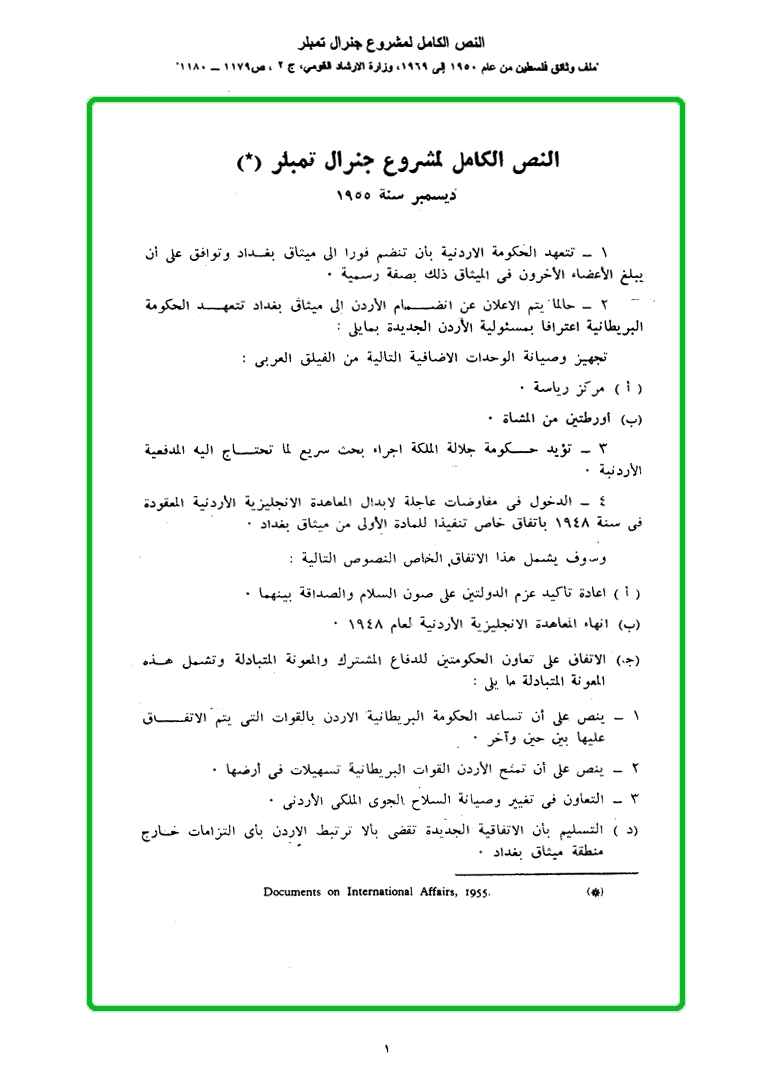 النص الكامل لمشروع جنرال تمبلر
"ملف وثائق فلسطين من عام ١٩٥٠ إلى ١٩٦٩، وزارة الارشاد القومي، ج ٢ ، ص ١١٧٩ – ١١٨٠"
النص الكامل لمشروع جنرال تمبلر (*)
ديسمبر سنة ١٩٥٥
١ – تتعهد الحكومة الاردنية بأن تنضم فورا الى ميثاق بغداد وتوافق على أن
يبلغ الأعضاء الأخرون فى الميثاق ذلك بصفة رسمية ٠
٢ – حالما يتم الاعلان عن انضمام الأردن الى ميثاق بغداد تتعهد الحكومة
البريطانية اعترافا بمسئولية الأردن الجديدة بمايلى :
تجهيز وصيانة الوحدات الاضافية التالية من الفيلق العربى :
( أ ) مركز رياسة ٠
(ب) أورطتين من المشاة ٠
٣ – تؤيد حكومة جلالة الملكة اجراء بحث سريع لما تحتاج اليه المدفعية
الأردنية ٠
٤ – الدخول فى مفاوضات عاجلة لابدال المعاهدة الانجليزية الأردنية المعقودة
فى سنة ١٩٤٨ باتفاق خاص تنفيذا للمادة الأولى من ميثاق بغداد ٠
وسوف يشمل هذا الاتفاق الخاص النصوص التالية :
( أ ) اعادة تأكيد عزم الدولتين على صون السلام والصداقة بينهما ٠
(ب) انهاء المعاهدة الانجليزية الأردنية لعام ١٩٤٨ ٠
(ج) الاتفاق على تعاون الحكومتين للدفاع المشترك والمعونة المتبادلة وتشمل هذه
المعونة المتبادلة ما يلى :
١ – ينص على أن تساعد الحكومة البريطانية الاردن بالقوات التى يتم الاتفاق
عليها بين حين وآخر ٠
٢ – ينص على أن تمنح الأردن القوات البريطانية تسهيلات فى أرضها ٠
٣ – التعاون فى تغيير وصيانة السلاح الجوى الملكى الأردنى ٠
(د ) التسليم بأن الاتفاقية الجديدة تقضى بألا ترتبط الاردن بأى التزامات خارج
منطقة ميثاق بغداد ٠
(*) Documents on International Affairs, 1955.
١